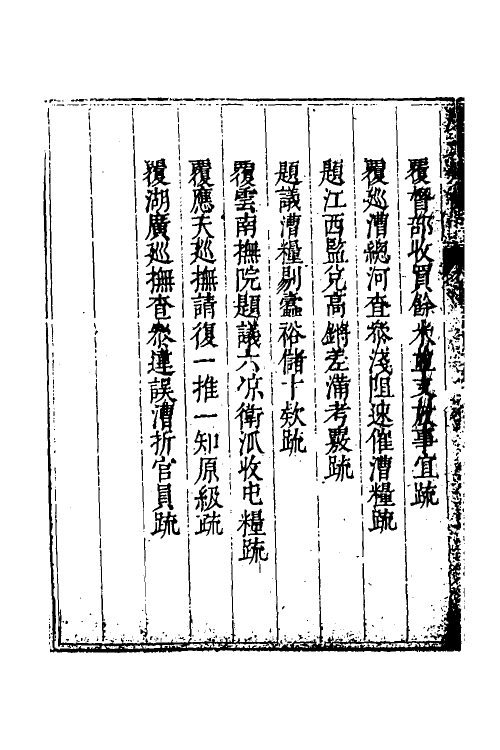 覆督部收買餘米並支放事宜疏
覆廵漕總河查叅淺阻速催漕糧疏
題江西監兌高鏘差滿考覈疏
題議漕糧剔蠹裕儲十欵疏
覆雲南撫院題議六凉衛派收屯糧疏
覆應天廵撫請復一推一知原級疏
覆湖廣廵撫查叅違誤漕折官員疏